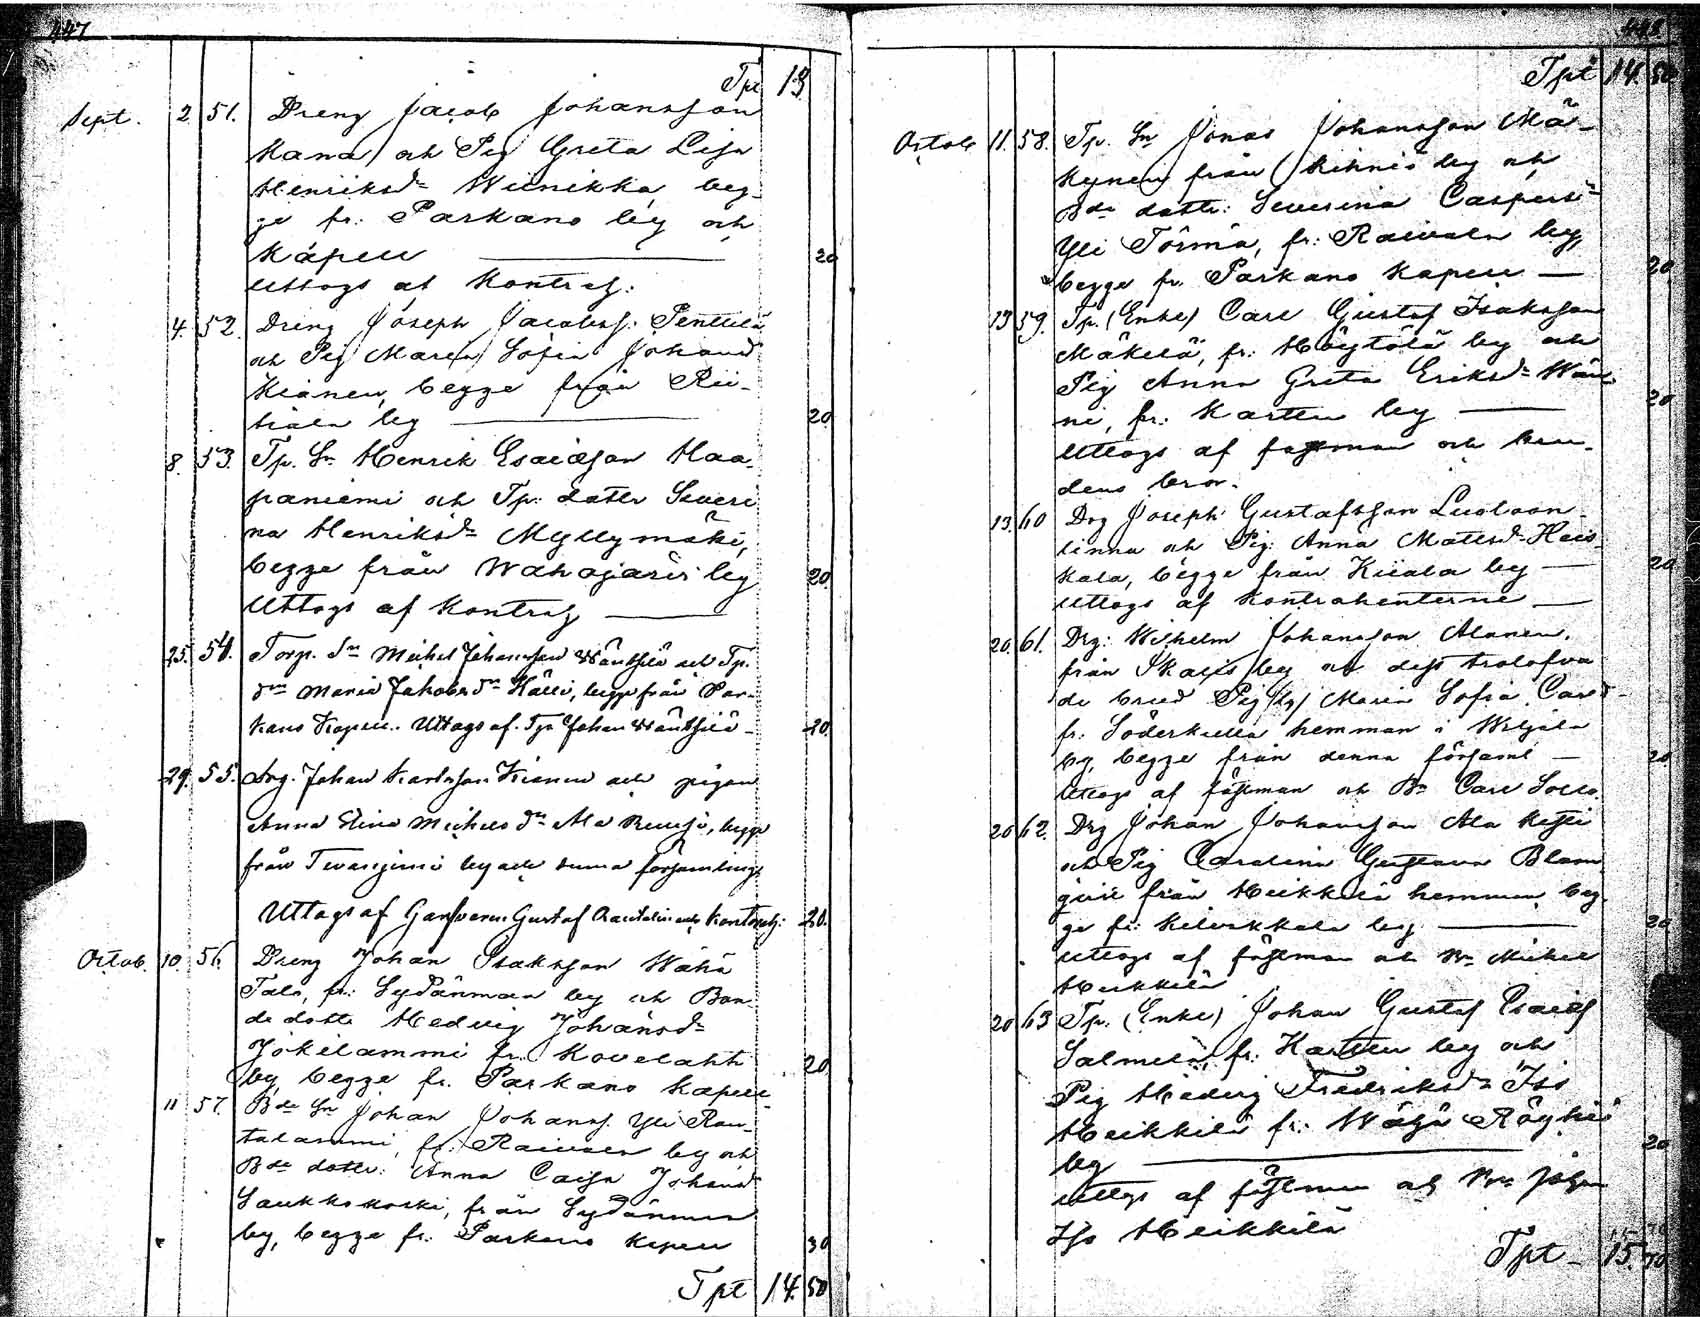 447
Tpt 13
Sept. 2. 51. Dreng Jacob Johansson
Kana och Pig Greta Lisa
Henriksdr Wiinikka beg-
ge fr: Parkano by och
Kapell 20
Uttogs af Kontrah:
4. 52. Dreng Joseph Jacobss: Penttilä
och Pig Maria Sofia Johansd
Kianen, begge från Rii-
by 20
8. 53. Tp. Sn Henrik Esaiasson Haa-
paniemi och Tp: dottr Severi
na Henriksdr Myllymäki,
begge från Wahojärvi by 20
Uttogs af Kontrah
25. 54. Torp. Sn Michel Johansson och Tp.
dr Maria Jakobsdr begge från Par-
kano Kapell. Uttogs af Tp Johan 20.
29. 55. Drg. Johan Karlsson Kianen och pigan
Anna Elina Michelsdr Ala begge
från by och denna församling
Uttogs af Garfvaren Gustaf och Kontrah: 20.
Octob. 10. 56. Dreng Johan Isaksson Wähä
Talo, fr: Sydänmaa by och Bon-
de dottr Hedvig Johansdr
Jokilammi fr: Kovelaht
by, begge fr. Parkano Kapell 20
11 57. Bde Sn Johan Johanss. Yli Rau-
talammi, fr: Raivala by och
Bde dottr: Anna Caisa Johansd
Saukkokoski, från Sydänmaa
by, begge fr. Parkano Kapell 30
Tpt 14. 50
448
Tpt 14. 50
Octob 11. 58. Tp. Sn Jonas Johansson Mä-
kynen från Kihniö by och
Bde dottr: Severina Caspersdr
Yli Törmä, fr: Raivala by,
begge fr. Parkano Kapell — 20
13 59. Tp. (Enkl) Carl Gustaf Isaksson
Mäkelä, fr: Höytölä by och
Pig Anna Greta Eriksdr Wän-
ni, fr: Karttu by 20
Uttogs af fästman och bru-
dens bror.
13. 60 Drg Joseph Gustafsson Luoloan-
linna och Pig: Anna Mattsdr Heis-
kala, begge från Kiiala by — 20
Uttogs af Kontrahenterne
20. 61. Drg: Wilhelm Johansson Alanen,
från Ikalis by och dess trolofva
de brud Pig Maria Sofia Carsd-
fr: Söderkulla hemman i
by, begge från denna församl — 20
Uttogs af fästman och Bn Carl
20 62. Drg Johan Johansson Ala
och Pig Carolina Gustava Blom
qvist från Heikkilä hemman, beg-
ge fr: Kilvakkala by 20
Uttogs af fästman och Bn Michel
Heikkilä
20 63 Tp. (Enkl) Johan Gustaf Esaias
Salmela, fr: Karttu by och
Pig Hedvig Fredriksdr Iso
Heikkilä fr: Wähä Röyhiö
by 20
uttogs af fästman och Bn Johan
Iso Heikkilä
Tpt — 15. 70